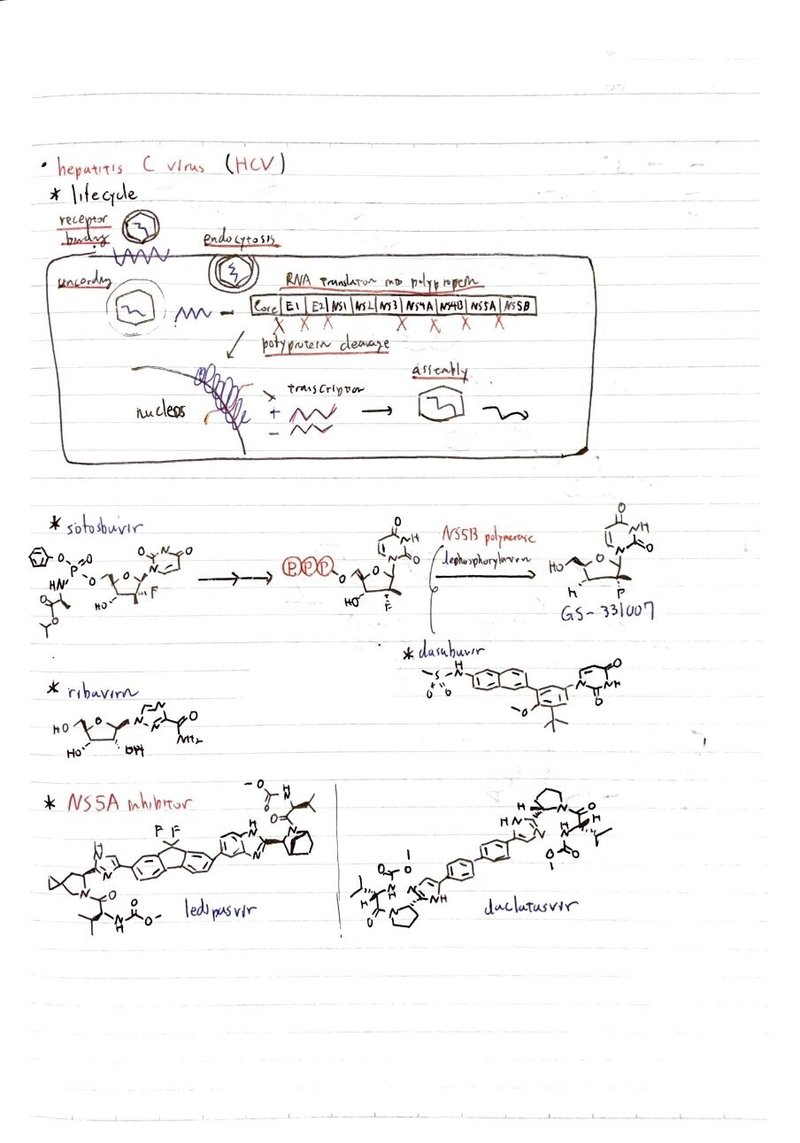 • hepatitis C virus (HCV)
* lifecycle
receptor
binding
endocytosis
uncoating
RNA translation into polyprotein
Core E1 E2 NS1 NS2 NS3 NS4A NS4B NS5A NS5B
X X X X X X X
polyprotein cleavage
assembly
transcription
nucleus
+
-
* sofosbuvir
NS5B polymerase
dephosphorylation
P P P
GS-331007
* dasabuvir
* ribavirin
* NS5A inhibitor
ledipasvir
daclatasvir